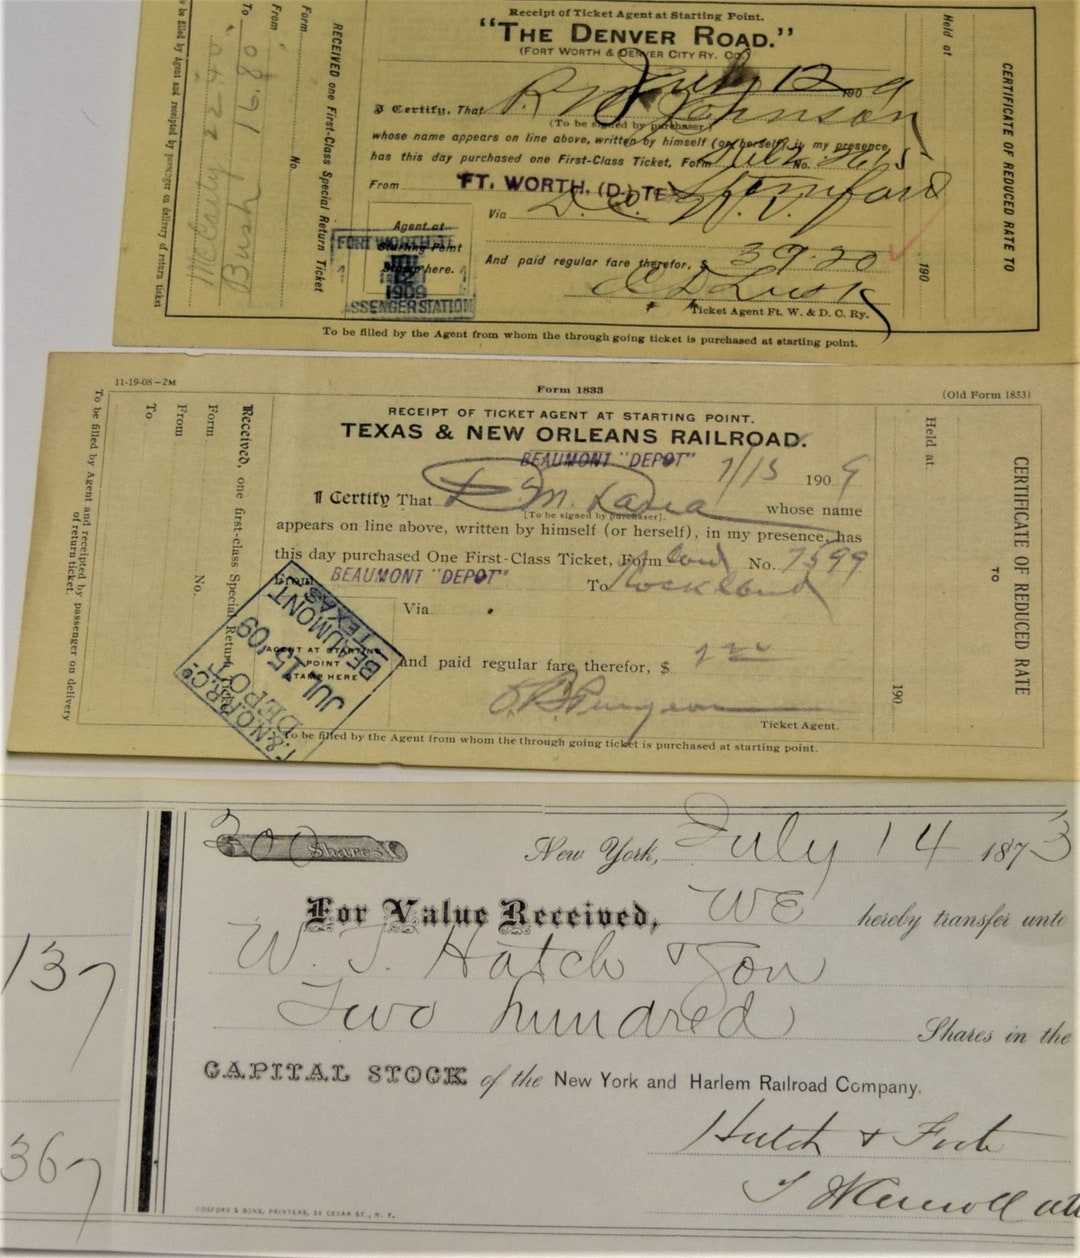 Receipt of Ticket Agent at Starting Point.
"THE DENVER ROAD."
(FORT WORTH & DENVER CITY RY. Co.)
July 12 190 9
I Certify, That R M Johnson
(To be signed by purchaser)
whose name appears on line above, written by himself (or herself), in my presence,
has this day purchased one First-Class Ticket, Form No.
From FT. WORTH, (D.) TEX
Via
And paid regular fare therefor, $ 39.20
Ticket Agent Ft. W. & D. C. Ry.
Agent at
Starting Point
Stamp here.
FORT WORTH, TE
JUL
12
1909
ASSENGER STATION
To be filled by the Agent from whom the through going ticket is purchased at starting point.
to be filled by Agent and receipted by passenger on delivery of return ticket
22.40
Bush 16.80
To
From
Form
No.
RECEIVED one First-Class Special Return Ticket
Held at
190
CERTIFICATE OF REDUCED RATE TO
11-19-08-2M
Form 1833
(Old Form 1833)
RECEIPT OF TICKET AGENT AT STARTING POINT.
TEXAS & NEW ORLEANS RAILROAD.
BEAUMONT "DEPOT" 7/15 190 9
I Certify That D M whose name
[To be signed by purchaser].
appears on line above, written by himself (or herself), in my presence, has
this day purchased One First-Class Ticket, Form No. 7599
From BEAUMONT "DEPOT" To Rockland
Via
and paid regular fare therefor, $
Ticket Agent.
AGENT AT STARTING
POINT
STAMP HERE
T. & N. O. R.R. Co.
DEPOT
JUL 15 '09
BEAUMONT
TEXAS
To be filled by the Agent from whom the through going ticket is purchased at starting point.
To be filled by Agent and receipted by passenger on delivery
of return ticket.
To
From
Form
No.
Received, one first-class Special Return Ticket
Held at
190
CERTIFICATE OF REDUCED RATE
TO
200 Shares
New York, July 14 1873
For Value Received, We hereby transfer unto
W. T. Hatch & Son
Two hundred Shares in the
CAPITAL STOCK of the New York and Harlem Railroad Company.
Hatch & Foote
137
367